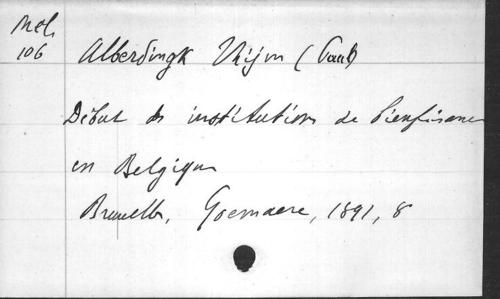 Mél.
106
Alberdingk Thijm (Paul)
Début des institutions de bienfaisance
en Belgique
Bruxelles, Goemaere, 1891, 8